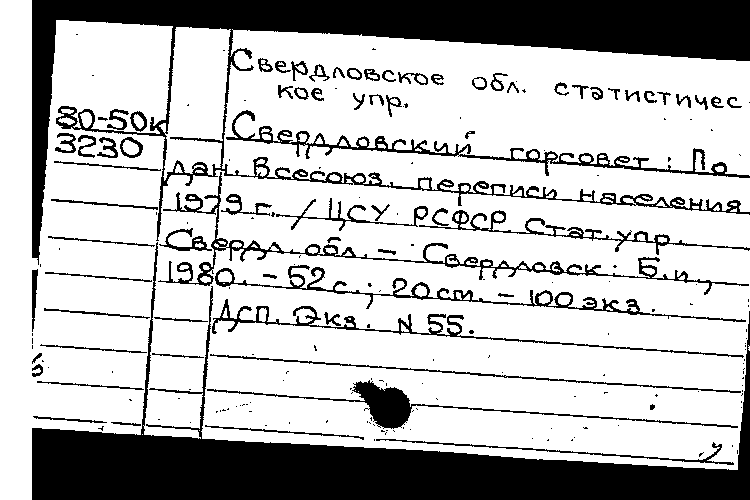 Свердловское обл. статистичес
кое упр.
80-50к
3230
Свердловский горсовет : По
дан. Всесоюз. переписи населения
1979 г. / ЦСУ РСФСР. Стат. упр.
Свердл. обл. – Свердловск : Б.и.,
1980. – 52 с. ; 20 см. – 100 экз.
Дсп. Экз. N 55.